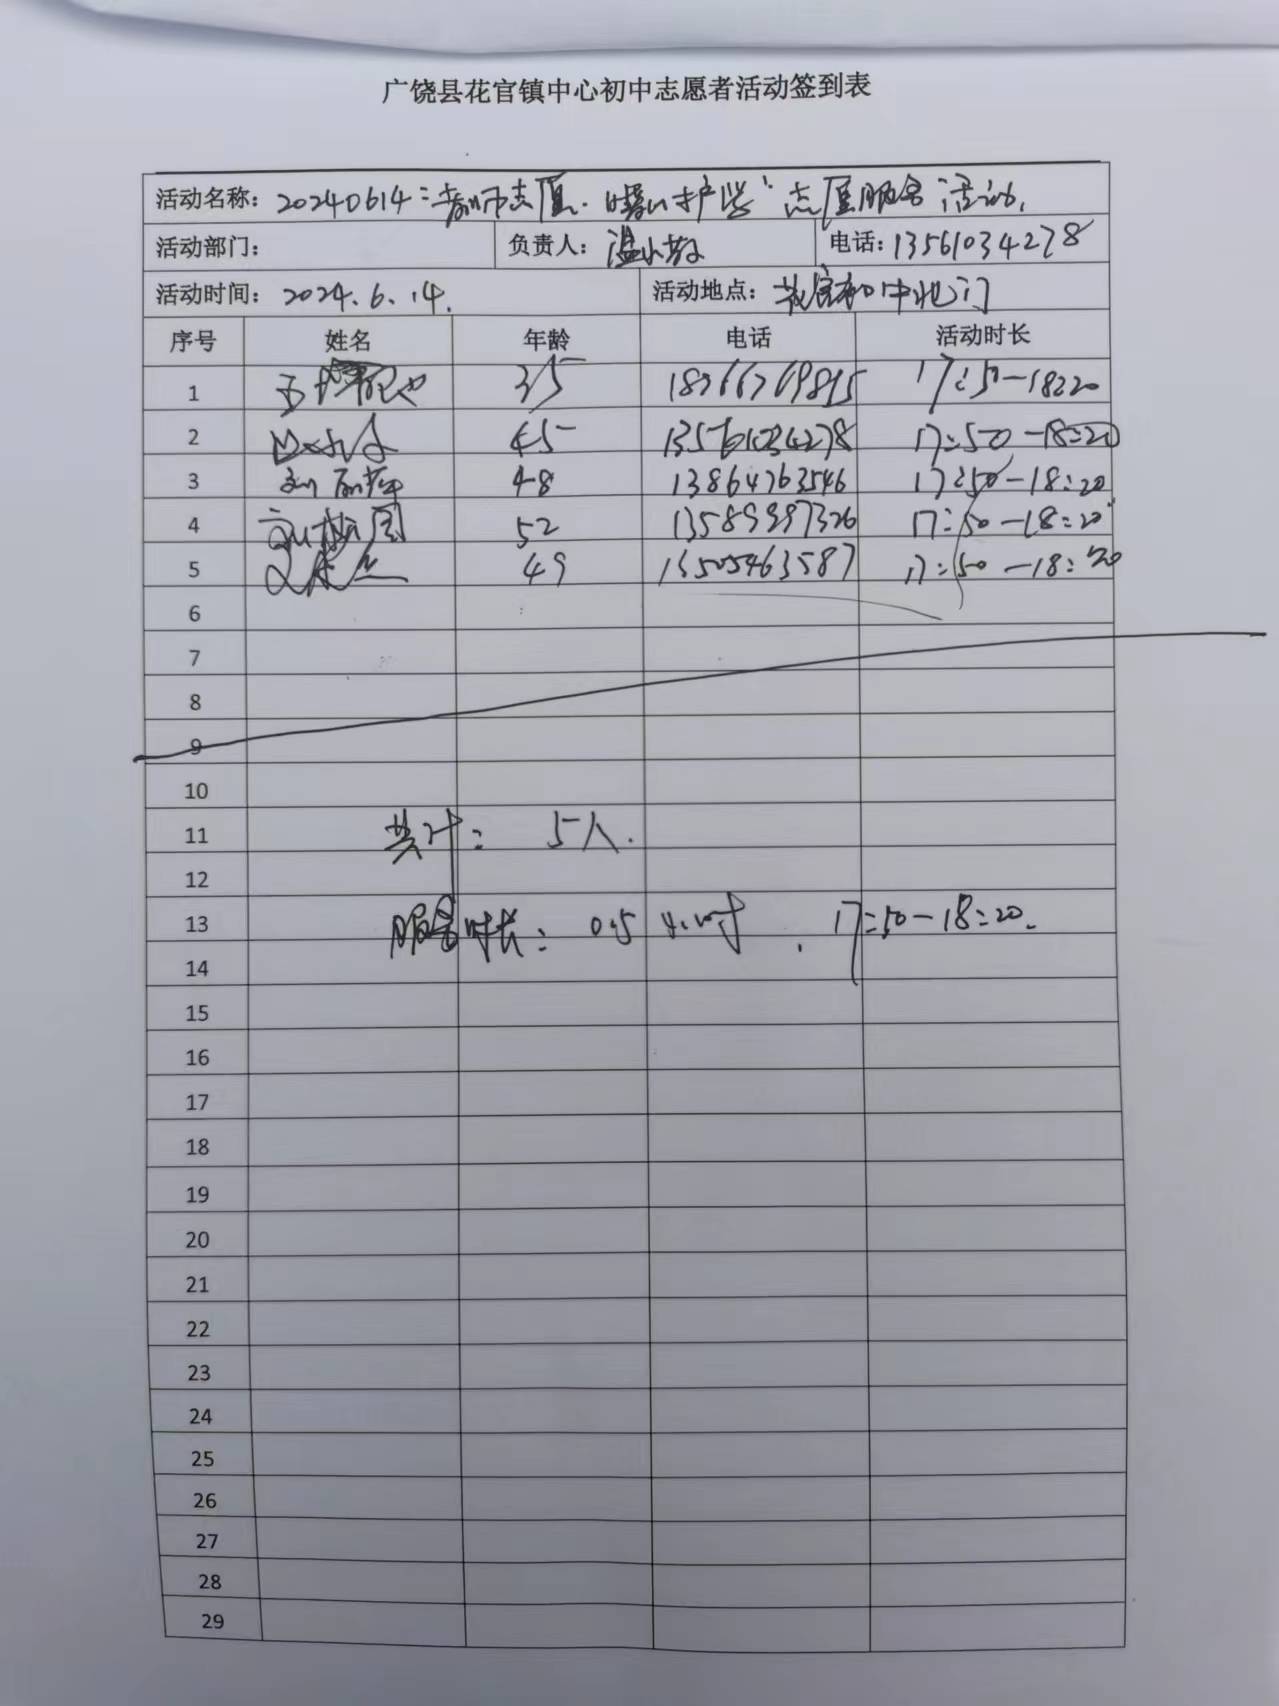 广饶县花官镇中心初中志愿者活动签到表
活动名称：20240614：教师志愿·暖心护学"志愿服务活动.
活动部门： 负责人： 电话：13561034278
活动时间：2024.6.14. 活动地点：花官初中北门
序号 姓名 年龄 电话 活动时长
1 35 17:50-18:20
2 45 13561034278 17:50-18:20
3 48 13864763546 17:50-18:20
4 52 13589997326 17:50-18:20
5 49 13505463587 17:50-18:20
6
7
8
9
10
11 共计： 5人.
12
13 服务时长：0.5小时. 17:50-18:20.
14
15
16
17
18
19
20
21
22
23
24
25
26
27
28
29